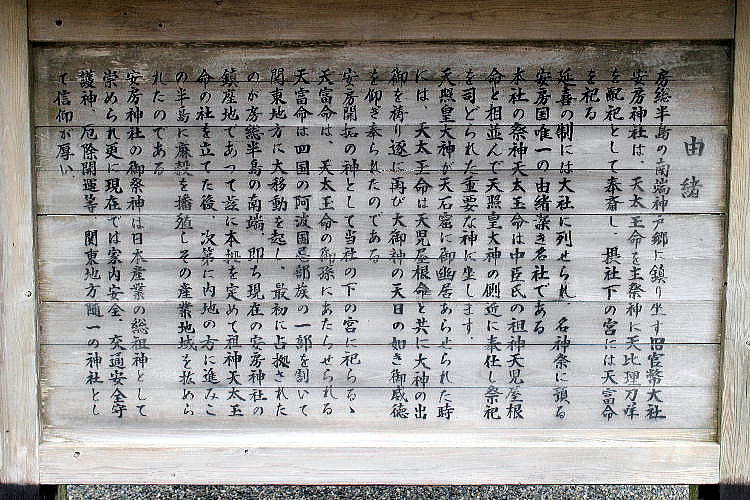 由緒
房総半島の南端神戸郷に鎮り坐す旧官幣大社
安房神社は、天太玉命を主祭神に天比理刀咩
を配祀として奉斎し、摂社下の宮には天富命
を祀る
延喜の制には大社に列せられ 名神祭に預る
安房国唯一の由緒深き名社である
本社の祭神天太玉命は中臣氏の祖神天児屋根
命と相並んで天照皇大神の側近に奉仕し祭祀
を司どられた重要な神に坐します。
天照皇大神が天石窟に御幽居あらせられた時
には、天太玉命は天児屋根命と共に大神の出
御を祷り遂に再び大御神の天日の如き御威徳
を仰ぎ奉られたのである
安房開拓の神として当社の下の宮に祀らるゝ
天富命は、天太玉命の御孫にあたらせられる
天富命は四国の阿波国忌部族の一部を割いて
関東地方に大移動を起し、最初に占拠された
のが房総半島の南端 即ち現在の安房神社の
鎮座地であって茲に本拠を定めて祖神天太玉
命の社を立てた後、次第に内地の方に進みこ
の半島に麻穀を播殖しその産業地域を拡めら
れたのである
安房神社の御祭神は日本産業の総祖神として
崇められ更に現在では家内安全 交通安全守
護神、厄除開運等、関東地方随一の神社とし
て信仰が厚い、